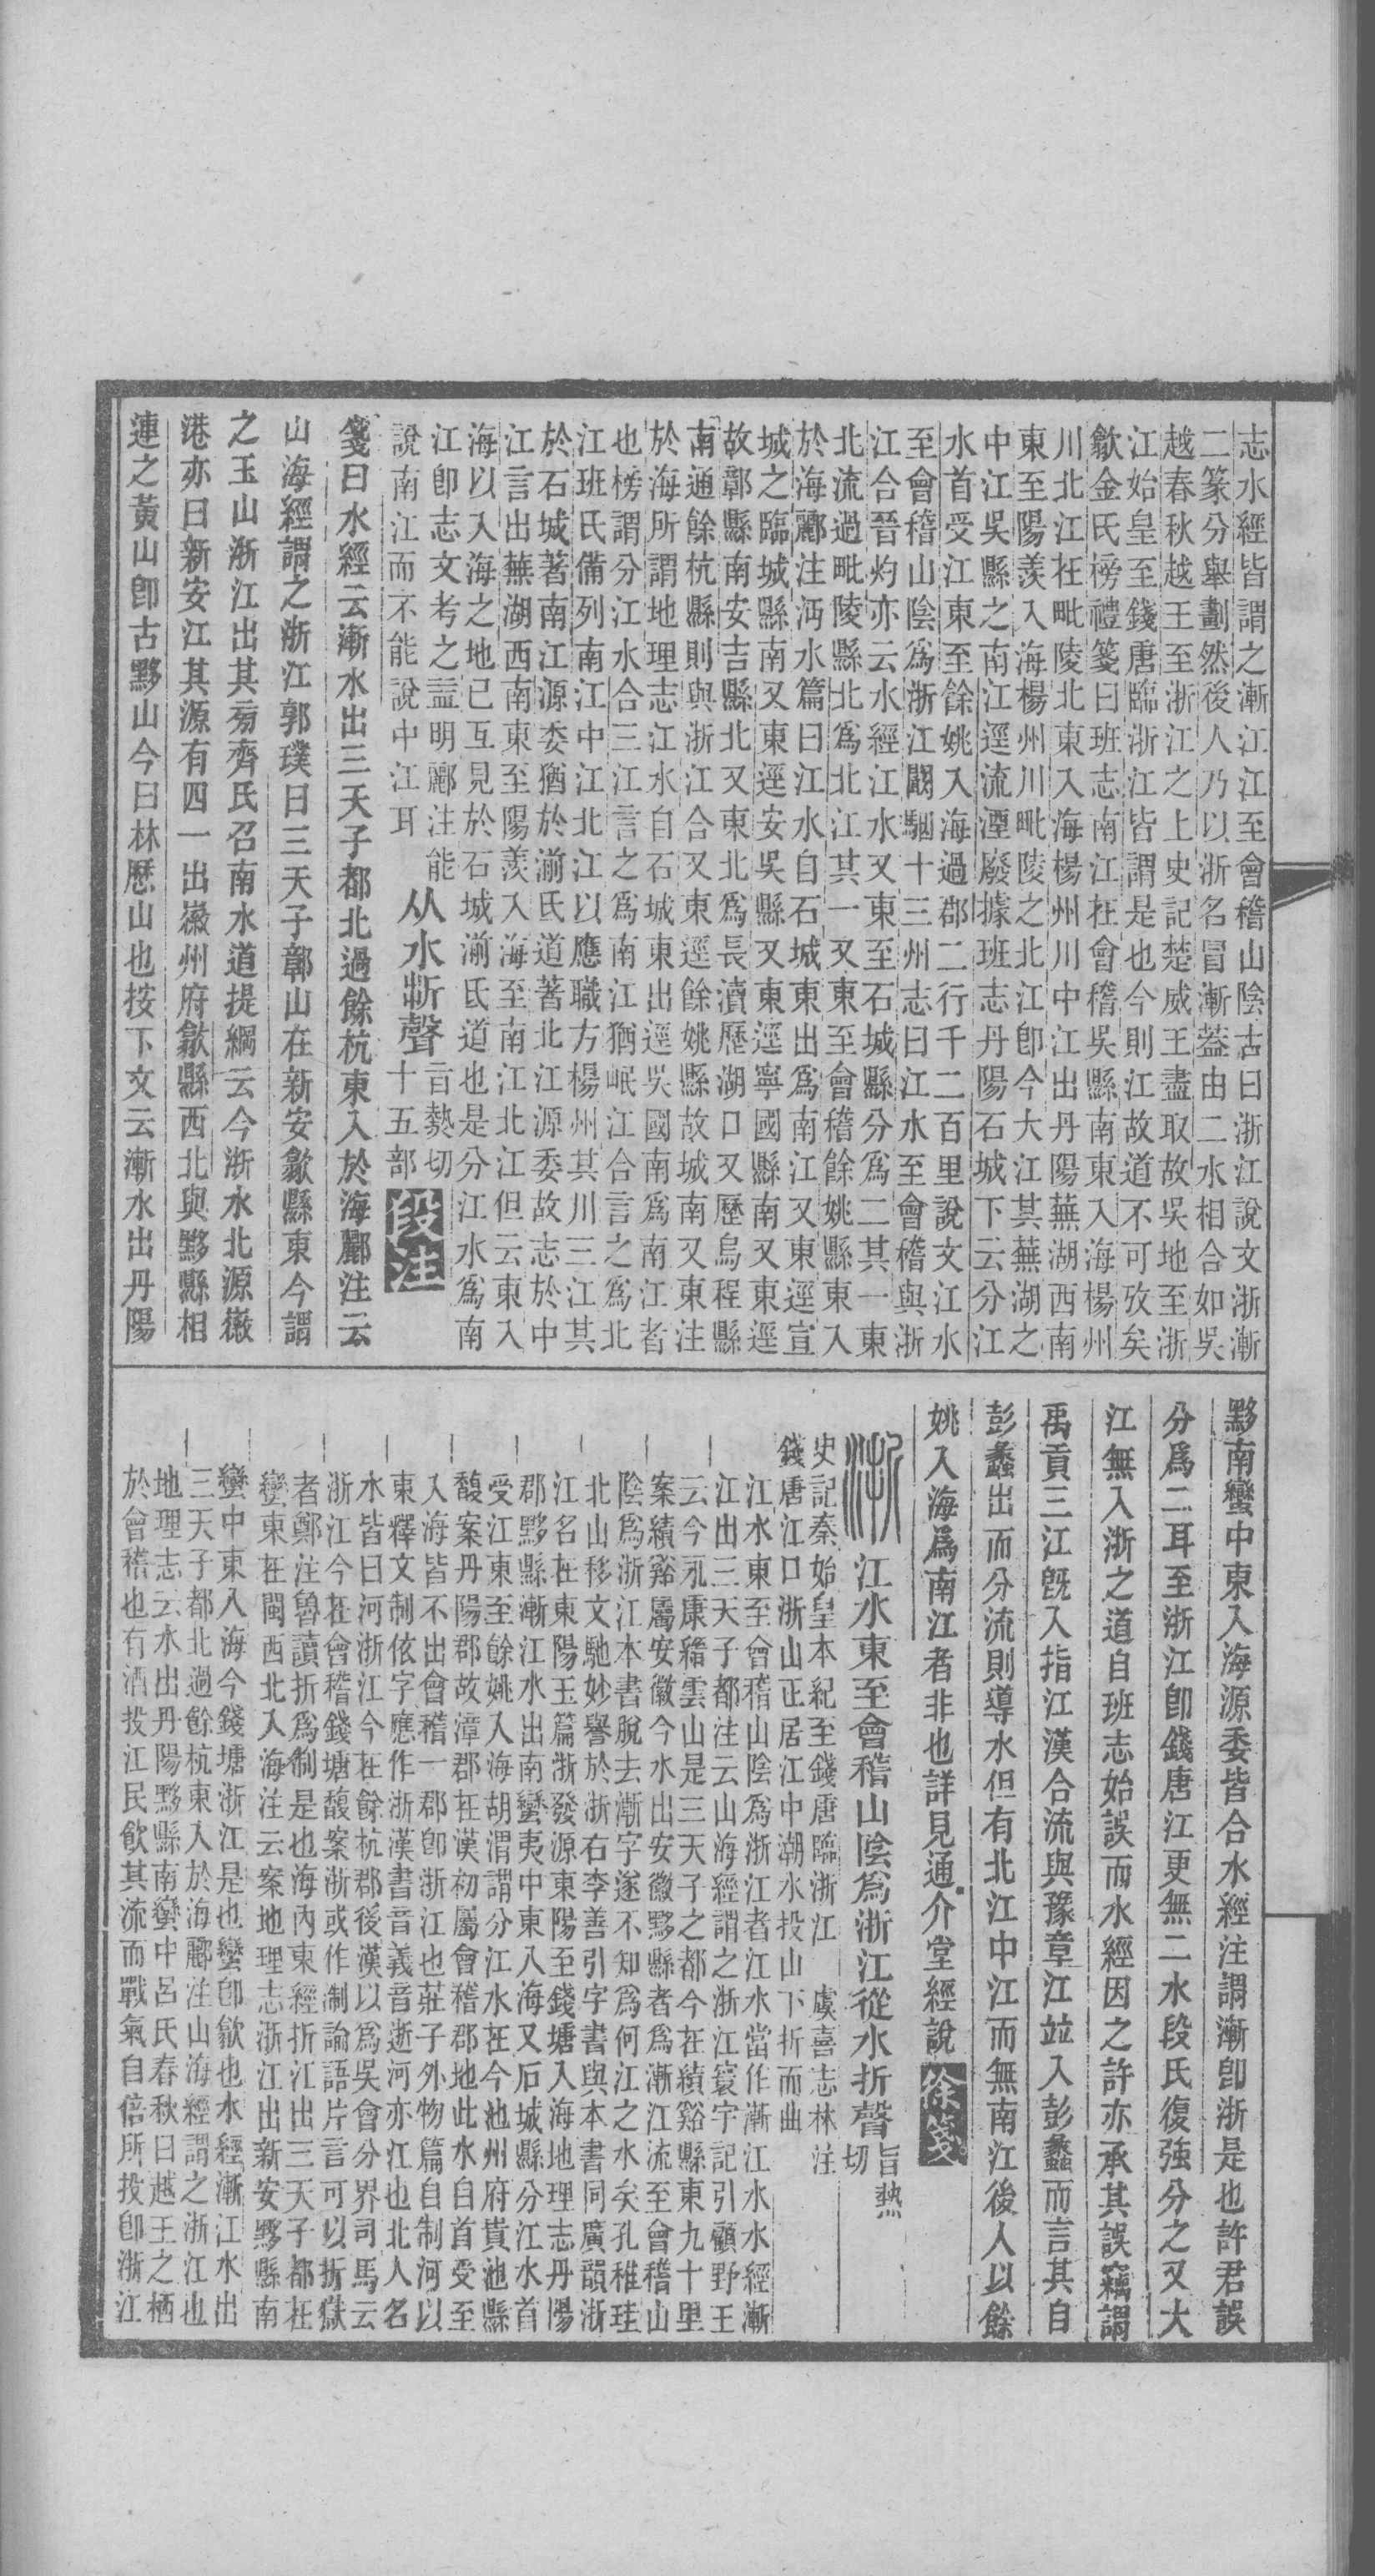 志水經皆謂之漸江江至會稽山陰古曰浙江說文浙漸
二篆分舉劃然後人乃以浙名冒漸蓋由二水相合如吳
越春秋越王至浙江之上史記楚威王盡取故吳地至浙
江始皇至錢唐臨浙江皆謂是也今則江故道不可攷矣
歙金氏榜禮箋曰班志南江在會稽吳縣南東入海楊州
川北江在毗陵北東入海楊州川中江出丹陽蕪湖西南
東至陽羨入海楊州川毗陵之北江卽今大江其蕪湖之
中江吳縣之南江逕流湮廢據班志丹陽石城下云分江
水首受江東至餘姚入海過郡二行千二百里說文江水
至會稽山陰爲浙江闞駰十三州志曰江水至會稽與浙
江合晉灼亦云水經江水又東至石城縣分爲二其一東
北流過毗陵縣北爲北江其一又東至會稽餘姚縣東入
於海酈注沔水篇曰江水自石城東出爲南江又東逕宣
城之臨城縣南又東逕安吳縣又東逕寧國縣南又東逕
故鄣縣南安吉縣北又東北爲長瀆歷湖口又歷烏程縣
南通餘杭縣則與浙江合又東逕餘姚縣故城南又東注
於海所謂地理志江水自石城東出逕吳國南爲南江者
也榜謂分江水合三江言之爲南江猶岷江合言之爲北
江班氏備列南江中江北江以應職方楊州其川三江其
於石城著南江源委猶於湔氐道著北江源委故志於中
江言出蕪湖西南東至陽羨入海至南江北江但云東入
海以入海之地已互見於石城湔氐道也是分江水爲南
江卽志文考之盂明酈注能
說南江而不能說中江耳
从水斬聲
旨熱切
十五部
段注
箋曰水經云漸水出三天子都北過餘杭東入於海酈注云
山海經謂之浙江郭璞曰三天子鄣山在新安歙縣東今謂
之玉山浙江出其旁齊氏召南水道提綱云今浙水北源徽
港亦曰新安江其源有四一出徽州府歙縣西北與黟縣相
連之黃山卽古黟山今曰林歷山也按下文云漸水出丹陽
黟南蠻中東入海源委皆合水經注謂漸卽浙是也許君誤
分爲二耳至浙江卽錢唐江更無二水段氏復強分之又大
江無入浙之道自班志始誤而水經因之許亦承其誤竊謂
禹貢三江旣入指江漢合流與豫章江竝入彭蠡而言其自
彭蠡出而分流則導水但有北江中江而無南江後人以餘
姚入海爲南江者非也詳見通介堂經說
徐箋
浙 江水東至會稽山陰爲浙江從水折聲
旨熱
切
史記秦始皇本紀至錢唐臨浙江 虞喜志林注
錢唐江口浙山正居江中潮水投山下折而曲
江水東至會稽山陰爲浙江者江水當作漸江水水經漸
江出三天子都注云山海經謂之浙江寰宇記引顧野王
云今永康縉雲山是三天子之都今在績谿縣東九十里
案績谿屬安徽今水出安徽黟縣者爲漸江流至會稽山
陰爲浙江本書脫去漸字遂不知爲何江之水矣孔稚珪
北山移文馳妙譽於浙右李善引字書與本書同廣韻浙
江名在東陽玉篇浙發源東陽至錢塘入海地理志丹陽
郡黟縣漸江水出南蠻夷中東入海又石城縣分江水首
受江東至餘姚入海胡渭謂分江水在今池州府貴池縣
馥案丹陽郡故漳郡在漢初屬會稽郡地此水自首受至
入海皆不出會稽一郡卽浙江也莊子外物篇自制河以
東釋文制依字應作浙漢書音義音逝河亦江也北人名
水皆曰河浙江今在餘杭郡後漢以爲吳會分界司馬云
浙江今在會稽錢塘馥案浙或作淛論語片言可以折獄
者鄭注魯讀折爲制是也海內東經折江出三天子都在
蠻東在閩西北入海注云案地理志浙江出新安黟縣南
蠻中東入海今錢塘浙江是也蠻卽歙也水經漸江水出
三天子都北過餘杭東入於海酈注山海經謂之浙江也
地理志云水出丹陽黟縣南蠻中呂氏春秋曰越王之栖
於會稽也有酒投江民飮其流而戰氣自倍所投卽浙江